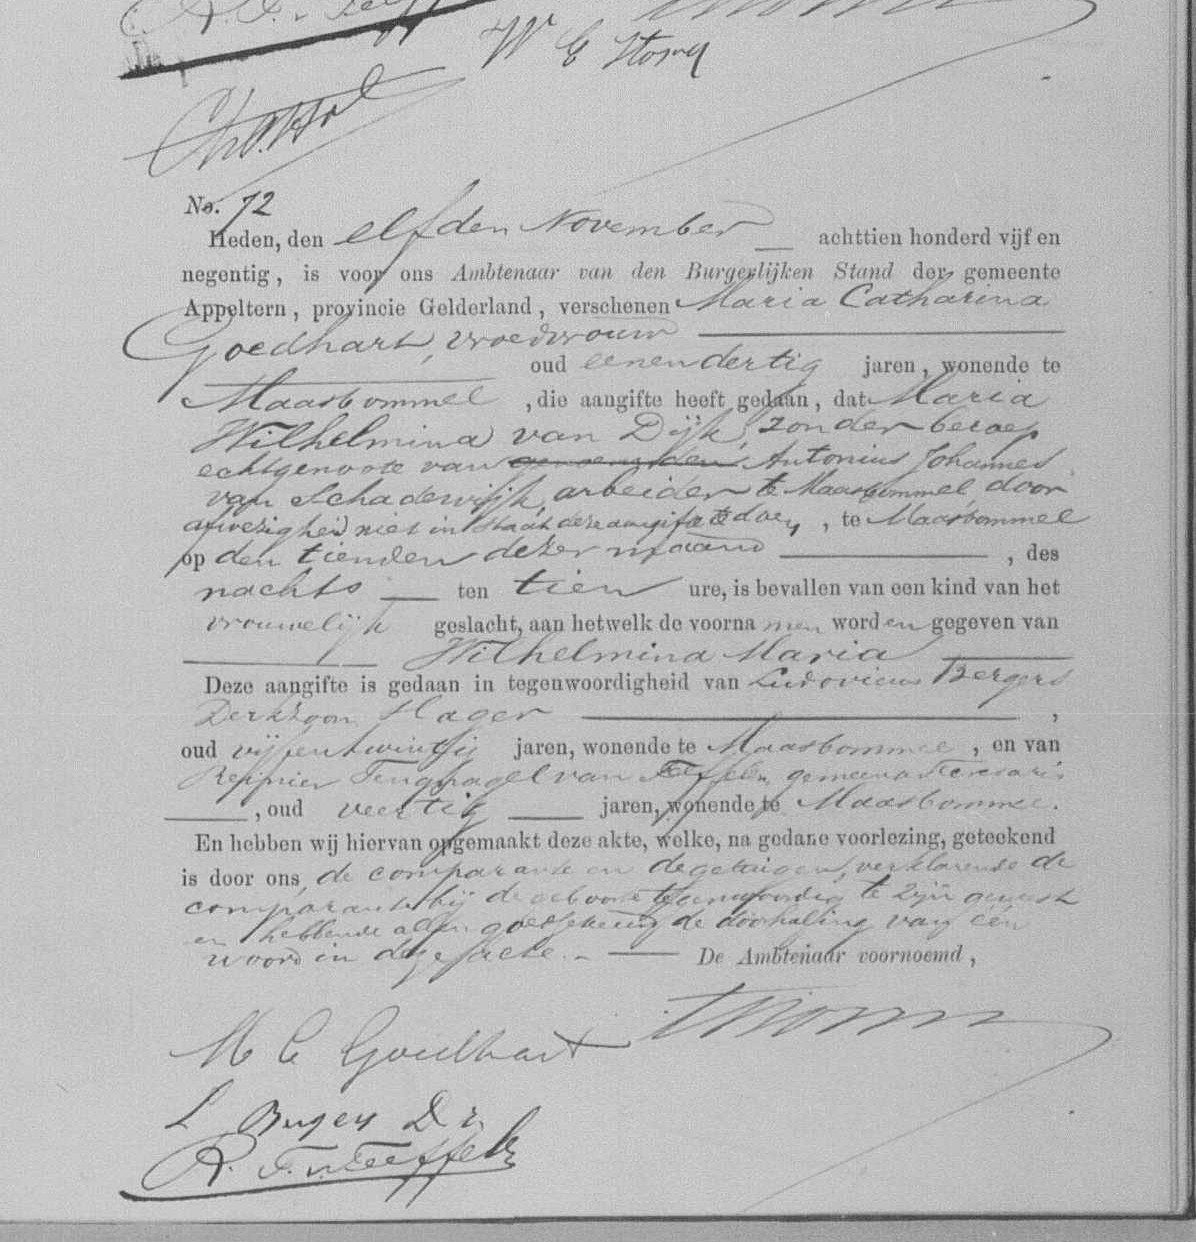 W E Hom
No. 72
Heden, den elfden November achttien honderd vijf en
negentig, is voor ons Ambtenaar van den Burgerlijken Stand der gemeente
Appeltern, provincie Gelderland, verschenen Maria Catharina
Goedhart, vroedvrouw
oud eenendertig jaren, wonende te
Maasbommel , die aangifte heeft gedaan, dat Maria
Wilhelmina van Dijk, zonder beroep
echtgenoote van Antonius Johannes
van Schadewijk, arbeider te Maasbommel, door
afwezigheid niet in staat deze aangifte te doen, , te Maasbommel
op den tienden dezer maand , des
nachts ten tien ure, is bevallen van een kind van het
vrouwelijk geslacht, aan hetwelk de voornamen worden gegeven van
Wilhelmina Maria
Deze aangifte is gedaan in tegenwoordigheid van Ludovicus Bergers
Derkzoon ,
oud vijfentwintig jaren, wonende te Maasbommel , en van
Reinier Tengnagel van Teeffelen, gemeentesecretaris
, oud veertig jaren, wonende te Maasbommel.
En hebben wij hiervan opgemaakt deze akte, welke, na gedane voorlezing, geteekend
is door ons, de comparante en de getuigen, verklarende de
comparante bij de geboorte tegenwoordig te zijn geweest
en hebbende allen goedgekeurd de doorhaling van een
woord in deze acte. De Ambtenaar voornoemd,
M C Goedhart
L Bergers Dz
R. T. v. Teeffelen